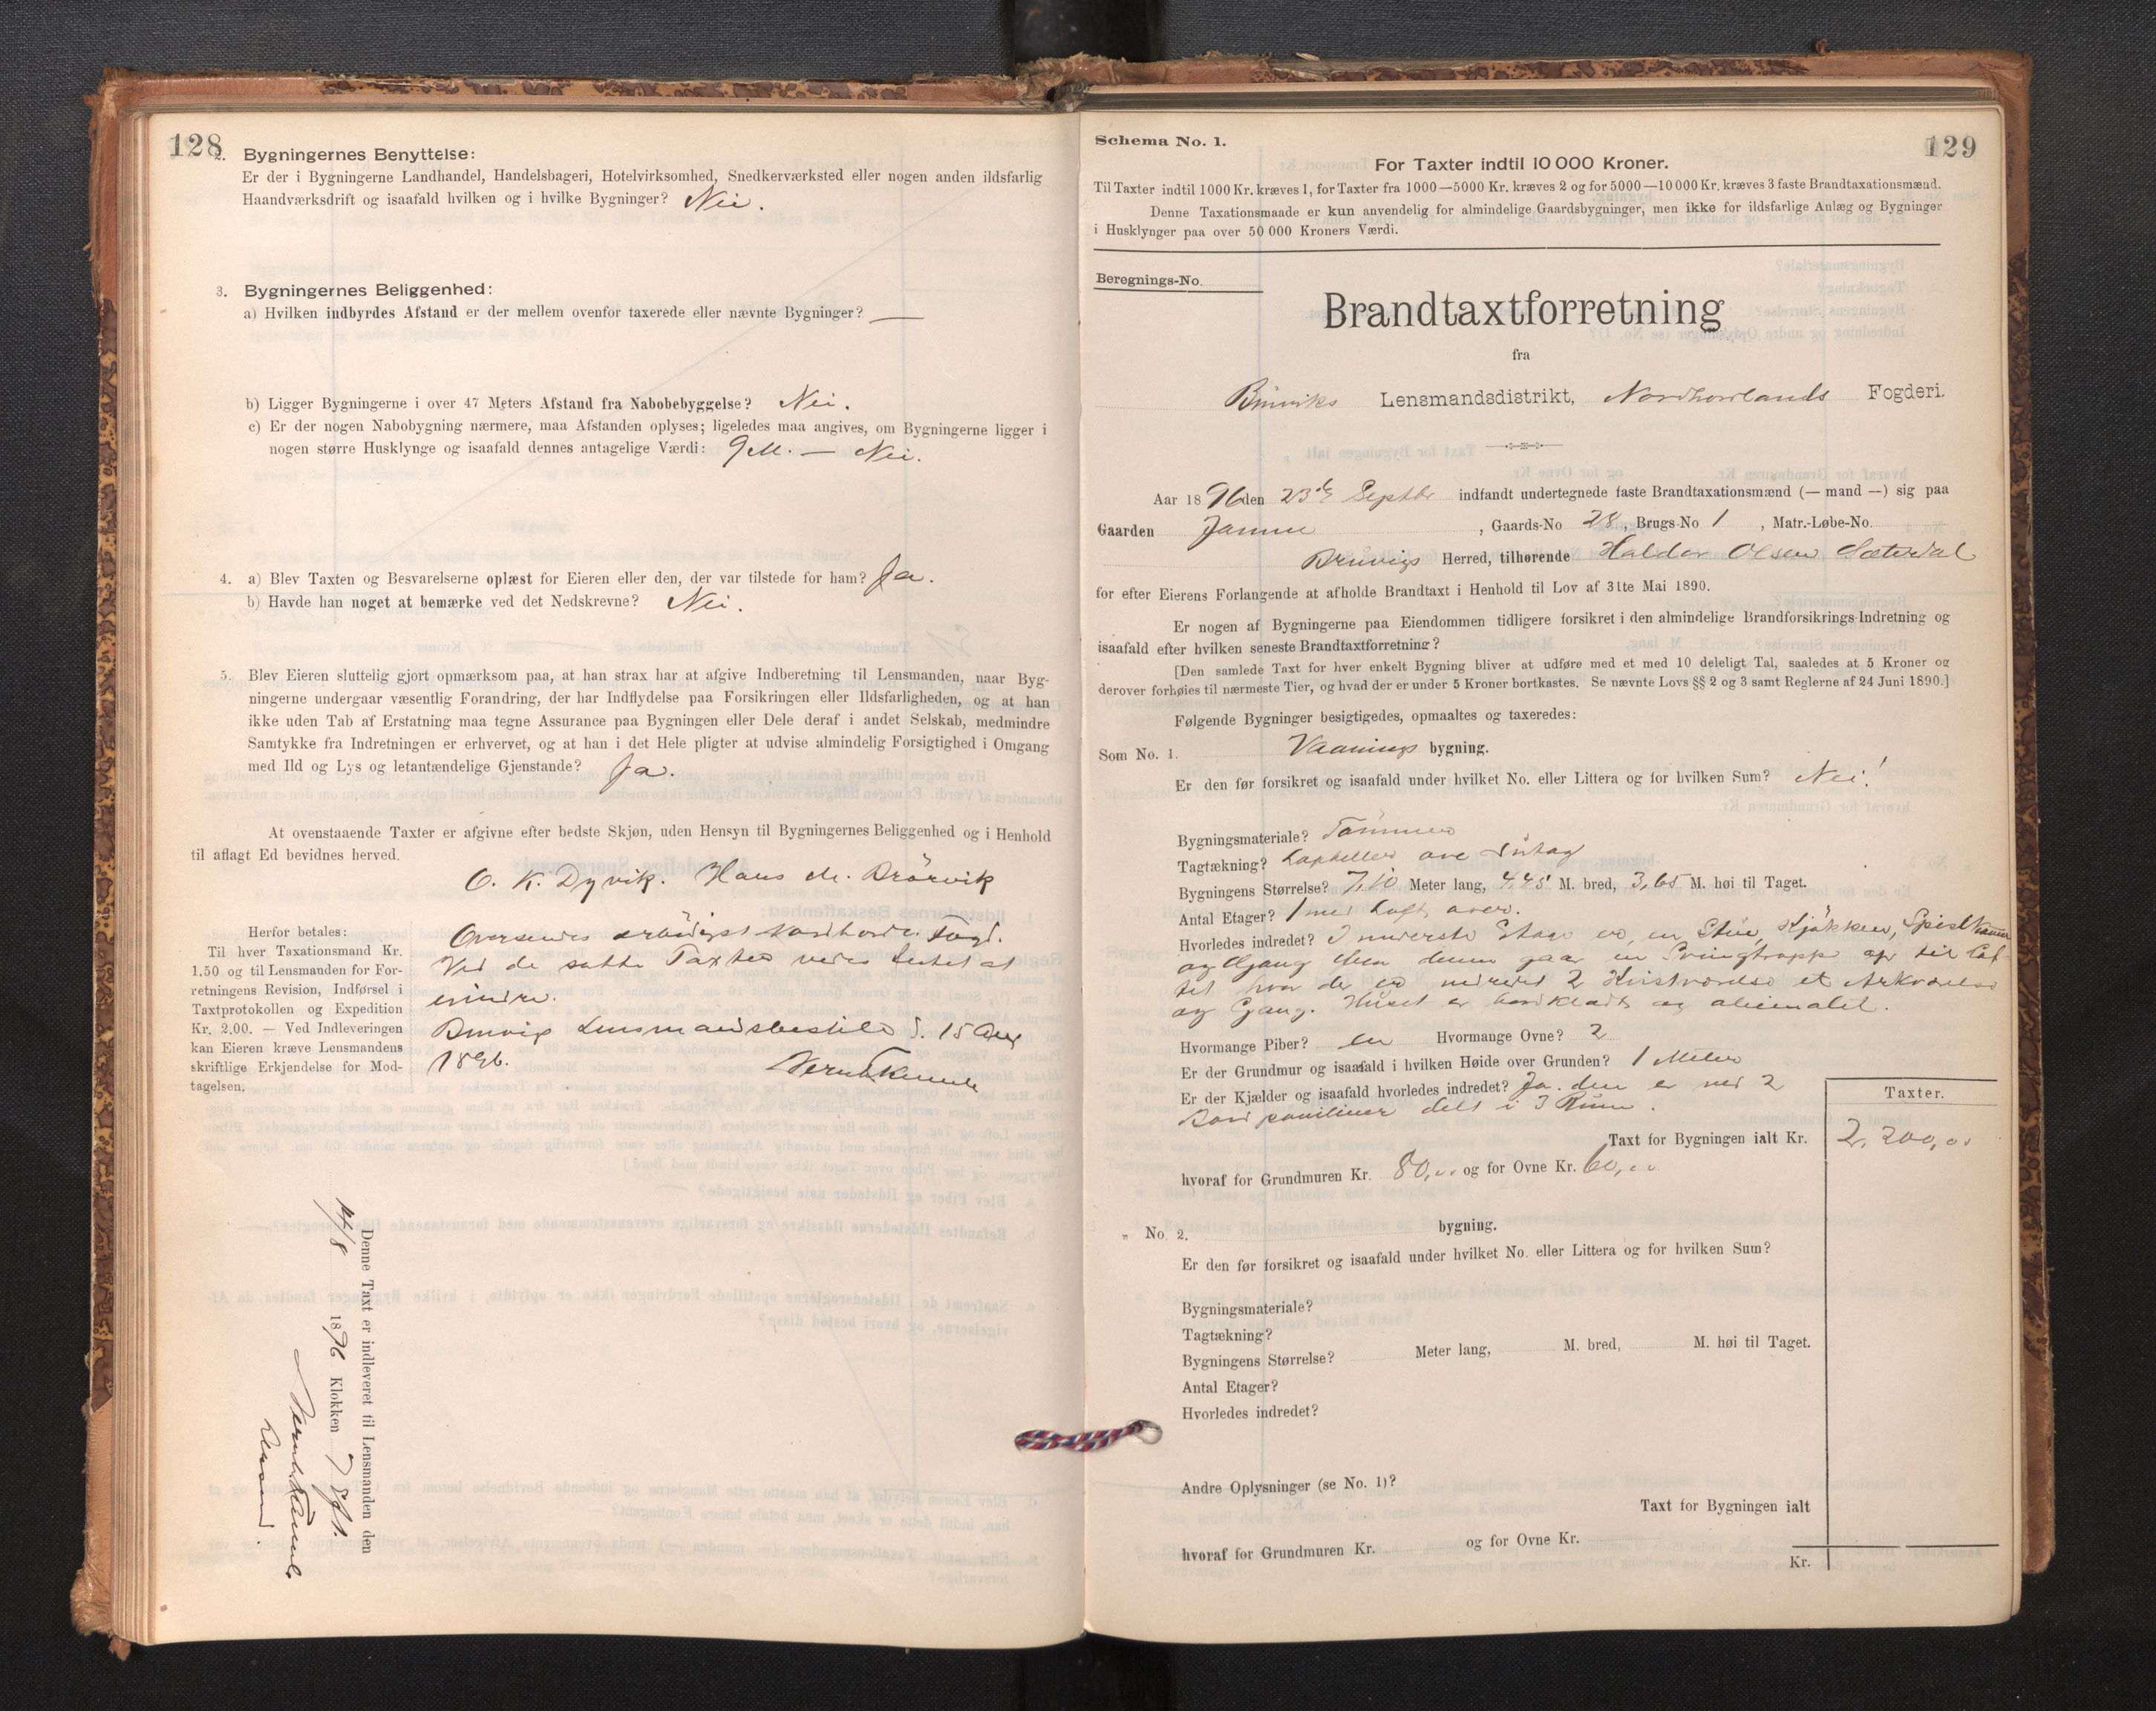 128
2. Bygningernes Benyttelse:
Er der i Bygningerne Landhandel, Handelsbageri, Hotelvirksomhed, Snedkerværksted eller nogen anden ildsfarlig
Haandværksdrift og isaafald hvilken og i hvilke Bygninger? Nei.
3. Bygningernes Beliggenhed:
a) Hvilken indbyrdes Afstand er der mellem ovenfor taxerede eller nævnte Bygninger? —
b) Ligger Bygningerne i over 47 Meters Afstand fra Nabobebyggelse? Nei.
c) Er der nogen Nabobygning nærmere, maa Afstanden oplyses; ligeledes maa angives, om Bygningerne ligger i
nogen større Husklynge og isaafald dennes antagelige Værdi: 9 M. — Nei.
4. a) Blev Taxten og Besvarelserne oplæst for Eieren eller den, der var tilstede for ham? Ja.
b) Havde han noget at bemærke ved det Nedskrevne? Nei.
5. Blev Eieren sluttelig gjort opmærksom paa, at han strax har at afgive Indberetning til Lensmanden, naar Byg-
ningerne undergaar væsentlig Forandring, der har Indflydelse paa Forsikringen eller Ildsfarligheden, og at han
ikke uden Tab af Erstatning maa tegne Assurance paa Bygningen eller Dele deraf i andet Selskab, medmindre
Samtykke fra Indretningen er erhvervet, og at han i det Hele pligter at udvise almindelig Forsigtighed i Omgang
med Ild og Lys og letantændelige Gjenstande? Ja.
At ovenstaaende Taxter er afgivne efter bedste Skjøn, uden Hensyn til Bygningernes Beliggenhed og i Henhold
til aflagt Ed bevidnes herved.
O. K. Dyvik. Hans M. Brörvik
Herfor betales:
Til hver Taxationsmand Kr.
1,50 og til Lensmanden for For-
retningens Revision, Indførsel i
Taxtprotokollen og Expedition
Kr. 2,00. — Ved Indleveringen
kan Eieren kræve Lensmandens
skriftlige Erkjendelse for Mod-
tagelsen.
Oversendes ærbödigst Nordhordl. Fogd.
Ved de satte Taxter vides Intet at
erindre.
Bruvig Lensmandsbestill. d. 15 Aug
1896.
Denne Taxt er indleveret til Lensmanden den
14/8 1896 Klokken 7 Eft.
129
Schema No. 1.
For Taxter indtil 10 000 Kroner.
Til Taxter indtil 1000 Kr. kræves 1, for Taxter fra 1000—5000 Kr. kræves 2 og for 5000—10 000 Kr. kræves 3 faste Brandtaxationsmænd.
Denne Taxationsmaade er kun anvendelig for almindelige Gaardsbygninger, men ikke for ildsfarlige Anlæg og Bygninger
i Husklynger paa over 50 000 Kroners Værdi.
Beregnings-No.
Brandtaxtforretning
fra
Bruviks Lensmandsdistrikt, Nordhorlands Fogderi.
Aar 1896 den 23de Septbr indfandt undertegnede faste Brandtaxationsmænd (— mand —) sig paa
Gaarden Jamne, Gaards-No 28, Brugs-No 1, Matr.-Løbe-No.
Bruvigs Herred, tilhørende Haldor Olsen Sæterdal
for efter Eierens Forlangende at afholde Brandtaxt i Henhold til Lov af 31te Mai 1890.
Er nogen af Bygningerne paa Eiendommen tidligere forsikret i den almindelige Brandforsikrings-Indretning og
isaafald efter hvilken seneste Brandtaxtforretning?
[Den samlede Taxt for hver enkelt Bygning bliver at udføre med et med 10 deleligt Tal, saaledes at 5 Kroner og
derover forhøies til nærmeste Tier, og hvad der er under 5 Kroner bortkastes. Se nævnte Lovs §§ 2 og 3 samt Reglerne af 24 Juni 1890.]
Følgende Bygninger besigtigedes, opmaaltes og taxeredes:
Som No. 1. Vaanings bygning.
Er den før forsikret og isaafald under hvilket No. eller Littera og for hvilken Sum? Nei!
Bygningsmateriale? Tömmer
Tagtækning?
Bygningens Størrelse? 7,10 Meter lang, 4,45 M. bred, 3,65 M. høi til Taget.
Antal Etager? 1 med Loft over.
Hvorledes indredet? I nederste Etage er en Stue, Kjökken, Spiskammer
og Gang. Fra denne gaar en Svingtrappe op til Lof-
tet hvor der er indredet 2 Kvistværelse et Arkværelse
og Gang. Huset er bordklædt og oliemalet.
Hvormange Piber? en Hvormange Ovne? 2
Er der Grundmur og isaafald i hvilken Høide over Grunden? 1 Meter
Er der Kjælder og isaafald hvorledes indredet? Ja. den er ved 2
Bord delt i 3 Rum.
Taxter.
Taxt for Bygningen ialt Kr. 2,200,00
hvoraf for Grundmuren Kr. 80,00 og for Ovne Kr. 60,00
„ No. 2. bygning.
Er den før forsikret og isaafald under hvilket No. eller Littera og for hvilken Sum?
Bygningsmateriale?
Tagtækning?
Bygningens Størrelse? Meter lang, M. bred, M. høi til Taget.
Antal Etager?
Hvorledes indredet?
Andre Oplysninger (se No. 1)?
Taxt for Bygningen ialt
hvoraf for Grundmuren Kr. og for Ovne Kr.
Kr.